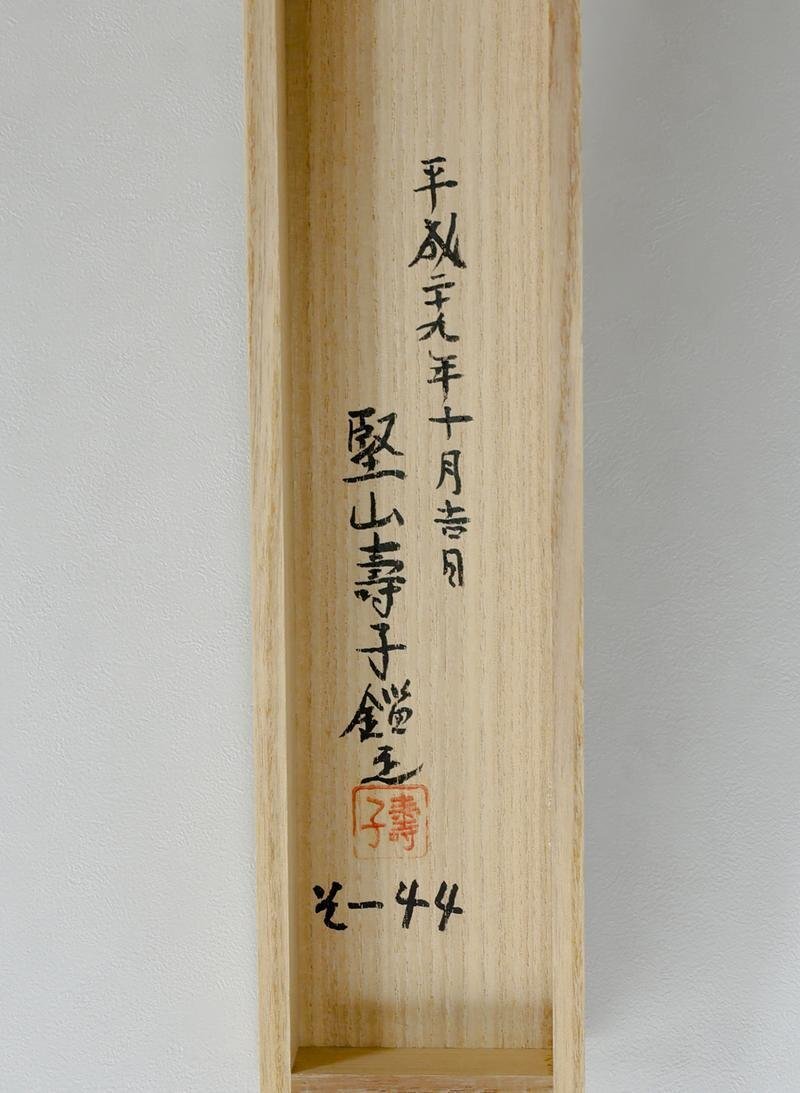 平成二十九年十月吉日
堅山壽子鑑定
壽子
そ-44